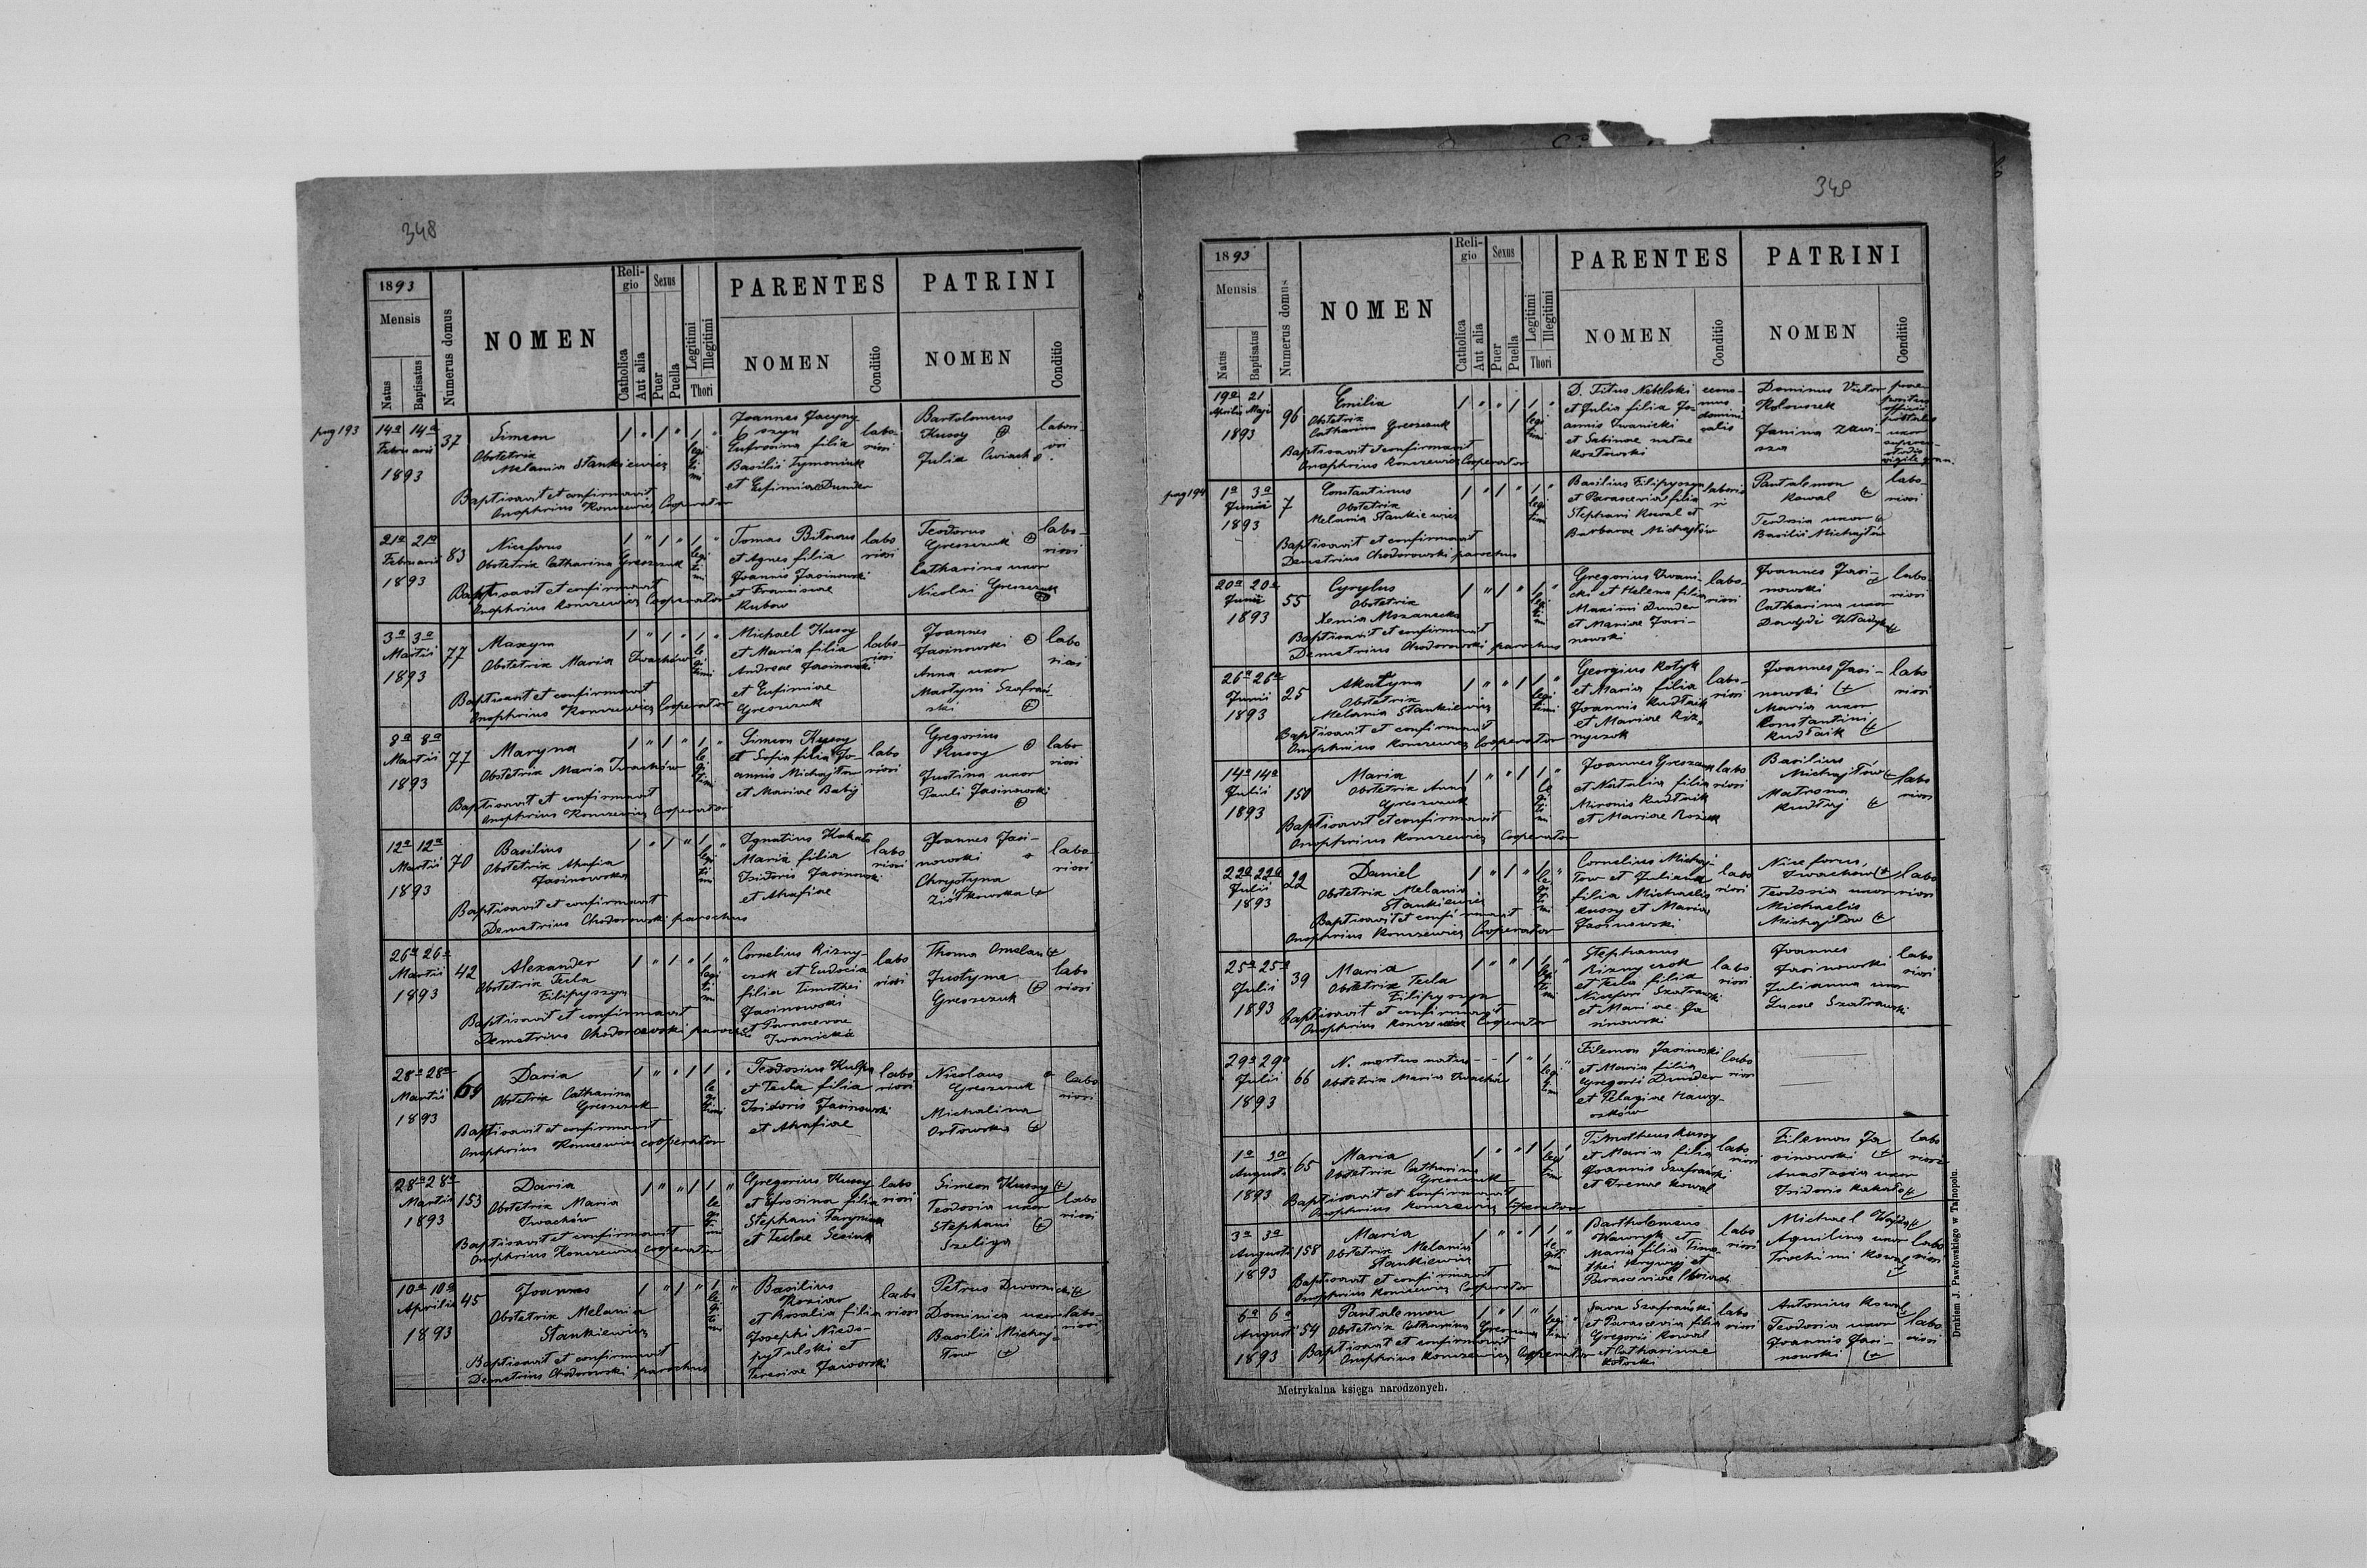 348
1893
Mensis
Natus
Baptisatus
Numerus domus
NOMEN
Reli-
gio
Catholica
Aut alia
Sexus
Puer
Puella
Legitimi
Illegitimi
Thori
PARENTES
NOMEN
Conditio
PATRINI
NOMEN
Conditio
pag 193
14a 14a
Februarii
1893
37
Simeon
Obstetrix
Melania Stankiewicz
Baptisavit et confirmavit
Onophrius Konczewicz Cooperator
legi
ti
mi
Joannes
Eufrosina filia
Basilii Tymoniuk
et Eufimiae Dunder
labo-
riosi
Bartolomeus
Kussy
Julia
labori-
osi
21a 21a
Februarii
1893
83
Niceforus
Obstetrix Catharina Greszczuk
Baptisavit et confirmavit
Onophrius Konczewicz Cooperator
legi
ti
mi
Tomas
et Agnes filia
Joannis Jasinowski
et Franciscae
Kubow
labo
riosi
Teodorus
Greszczuk
Catharina uxor
Nicolai Greszczuk
labo-
riosi
3a 3a
Martii
1893
77
Maxym
Obstetrix Maria Iwachów
Baptisavit et confirmavit
Onophrius Konczewicz Cooperator
le
gi
timi
Michael Kussy
et Maria filia
Andreae Jasinowski
et Eufimiae
Greszczuk
labo-
riosi
Joannes
Jasinowski
Anna uxor
Martyni Szafrań-
ski
labo
riosi
8a 8a
Martii
1893
77
Maryna
Obstetrix Maria Iwachów
Baptisavit et confirmavit
Onophrius Konczewicz Cooperator
le
gi
timi
Simeon Kussy
et Sofia filia Jo-
annis Michajłow
et Mariae Babij
labo
riosi
Gregorius
Kussy
Justina uxor
Pauli Jasinowski
labo
riosi
12a 12a
Martii
1893
70
Basilius
Obstetrix Ahafia
Jasinowska
Baptisavit et confirmavit
Demetrius Chodorowski parochus
legi
ti
mi
Ignatius Kakała
Maria filia
Isidoris Jasinowski
et Ahafiae
labo
riosi
Joannes Jasi-
nowski
Chrystyna
Ziółkowska
labo-
riosi
26a 26a
Martii
1893
42
Alexander
Obstetrix Tecla
Filipyszyn
Baptisavit et confirmavit
Demetrius Chodorowski parochus
legi
ti
mi
Cornelius Rizny-
czok et Eudocia
filia Timothei
Jasinowski
et Parascevae
Iwanicka
labo
riosi
Thoma Omelan
Justyna
Greszczuk
labo
riosi
28a 28a
Martii
1893
69
Daria
Obstetrix Catharina
Greszczuk
Baptisavit et confirmavit
Onophrius Konczewicz cooperator
le
gi
timi
Teodosius Kulpa
et Tecla filia
Isidoris Jasinowski
et Ahafiae
labo
riosi
Nicolaus
Greszczuk
Michalina
Orłowska
labo
riosi
28a 28a
Martii
1893
153
Daria
Obstetrix Maria
Iwachów
Baptisavit et confirmavit
Onophrius Konczewicz cooperator
le
gi
ti
mi
Gregorius Kussy
et Efrosina filia
Stephani Faryniuk
et Teclae
labo
riosi
Simeon Kussy
Teodosia uxor
Stephani
Szeliga
labo
riosi
10a 10a
Aprilis
1893
45
Joannes
Obstetrix Melania
Stankiewicz
Baptisavit et confirmavit
Demetrius Chodorowski parochus
le
gi
ti
mi
Basilius
Koziar
et Rosalia filia
Josephi Niedo-
pytalski et
Teresiae Jaworski
labo
riosi
Petrus Dwornicki
Dominica uxor
Basilii Michaj-
łow
labo-
riosi
349
1893
Mensis
Natus
Baptisatus
Numerus domus
NOMEN
Reli-
gio
Catholica
Aut alia
Sexus
Puer
Puella
Legitimi
Illegitimi
Thori
PARENTES
NOMEN
Conditio
PATRINI
NOMEN
Conditio
19a 21
Aprilis Maji
1893
96
Emilia
Obstetrix
Catharina Greszczuk
Baptisavit et confirmavit
Onophrius Konczewicz Cooperator
legi
timi
D. Titus Nebelski
et Julia filia Jo-
annis Iwanicki
et Sabinae natae
Kozłowski
econo-
mus
domini
calis
Dominus Victor
Kolouszek
Janina Zawi-
sza
officii
uxor
pag 194
1a 3a
Junii
1893
7
Constantinus
Obstetrix
Melania Stankiewicz
Baptisavit et confirmavit
Demetrius Chodorowski parochus
legi
timi
Basilius Filipyszyn
et Parascevia filia
Stephani Kowal et
Barbarae Michajłów
laborio
si
Pantalemon
Kowal
Teodosia uxor
Basilii Michajłów
labo-
riosi
20a 20a
Junii
1893
55
Cyrylus
Obstetrix
Xenia Mszanecka
Baptisavit et confirmavit
Demetrius Chodorowski parochus
legi
ti
mi
Gregorius Iwani-
cki et Helena filia
Maximi Dunder
et Mariae Jasi-
nowski
labo-
riosi
Joannes Jasi-
nowski
Catharina uxor
Dawydi Władyka
labo
riosi
26a 26a
Junii
1893
25
Akatyna
Obstetrix
Melania Stankiewicz
Baptisavit et confirmavit
Onophrius Konczewicz Cooperator
legi
timi
Georgius Kotyk
et Maria filia
Joannis Kudłaik
et Mariae Riz-
nyczok
labo-
riosi
Joannes Jasi-
nowski
Maria uxor
Konstantini
Kudłaik
labo
riosi
14a 14a
Julii
1893
150
Maria
Obstetrix Anna
Greszczuk
Baptisavit et confirmavit
Onophrius Konczewicz Cooperator
le
gi
ti
mi
Joannes Greszczuk
et Natalia filia
Mironis Kudłaik
et Mariae
labo
riosi
Basilius
Michajłów
Matrona
labo
riosi
22a 22a
Julii
1893
22
Daniel
Obstetrix Melania
Stankiewicz
Baptisavit et confirmavit
Onophrius Konczewicz Cooperator
le
gi
ti
mi
Cornelius Michaj-
łow et Juliana
filia Michaelis
Kussy et Maria
Jasinowski
labo
riosi
Niceforus
Iwachów
Teodosia uxor
Michaelis
Michajłow
labo
riosi
25a 25a
Julii
1893
39
Maria
Obstetrix Tecla
Filipyszyn
Baptisavit et confirmavit
Onophrius Konczewicz Cooperator
legi
ti
mi
Stephanus
Riznyczok
et Tecla filia
Nicefori Szatrawski
et Mariae Ja-
sinowski
labo
riosi
Joannes
Jasinowski
Julianna uxor
Lucae Szatrawski
labo
riosi
29a 29a
Julii
1893
66
N. mortus natus
Obstetrix Maria Iwachów
legi
ti
mi
Filemon Jasinoski
et Maria filia
Gregorii Dunder
et Pelagiae Hawry-
szków
labo
riosi
1a 3a
Augusti
1893
65
Maria
Obstetrix Catharina
Greszczuk
Baptisavit et confirmavit
Onophrius Konczewicz Cooperator
legi
timi
Timotheus Kussy
et Maria filia
Joannis Szafrański
et Irenae Kowal
labo
riosi
Filemon Ja
sinowski
Anastasia uxor
Isidoris Kakała
labo
riosi
3a 3a
Augusti
1893
158
Maria
Obstetrix Melania
Stankiewicz
Baptisavit et confirmavit
Onophrius Konczewicz Cooperator
le
giti
mi
Bartholomeus
Wawryk et
Maria filia Timo-
thei Krywyj et
Parasceviae
labo
riosi
Michael
Aquilina uxor
Trochimi Kowal
labo
riosi
6a 6a
Augusti
1893
54
Pantalemon
Obstetrix Catharina Greszczuk
Baptisavit et confirmavit
Onophrius Konczewicz Cooperator
legi
timi
Sava Szafrański
et Parascevia filia
Gregorii Kowal
et Catharinae
Kotorski
labo
riosi
Antonius Kowal
Teodosia uxor
Joannis Jasi-
nowski
labo
riosi
Metrykalna księga narodzonych.
Drukiem J. Pawłowskiego w Tarnopolu.